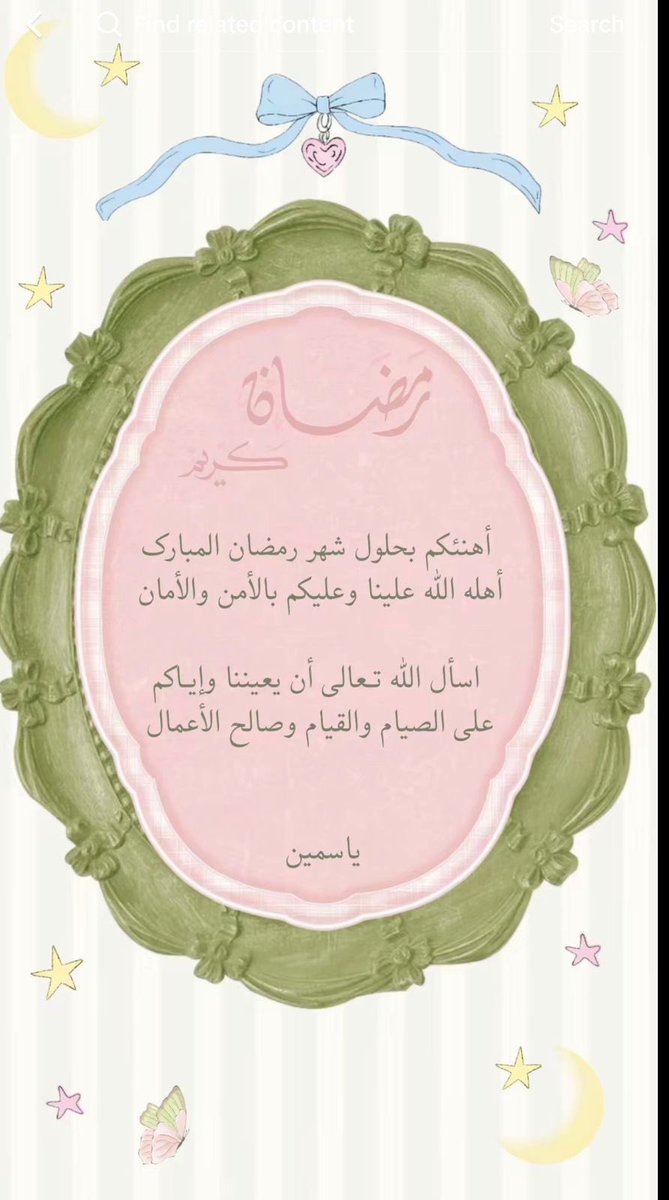 Find related content
Search
رمضان
كريم
أهنئكم بحلول شهر رمضان المبارك
أهله الله علينا وعليكم بالأمن والأمان
اسأل الله تعالى أن يعيننا وإياكم
على الصيام والقيام وصالح الأعمال
ياسمين